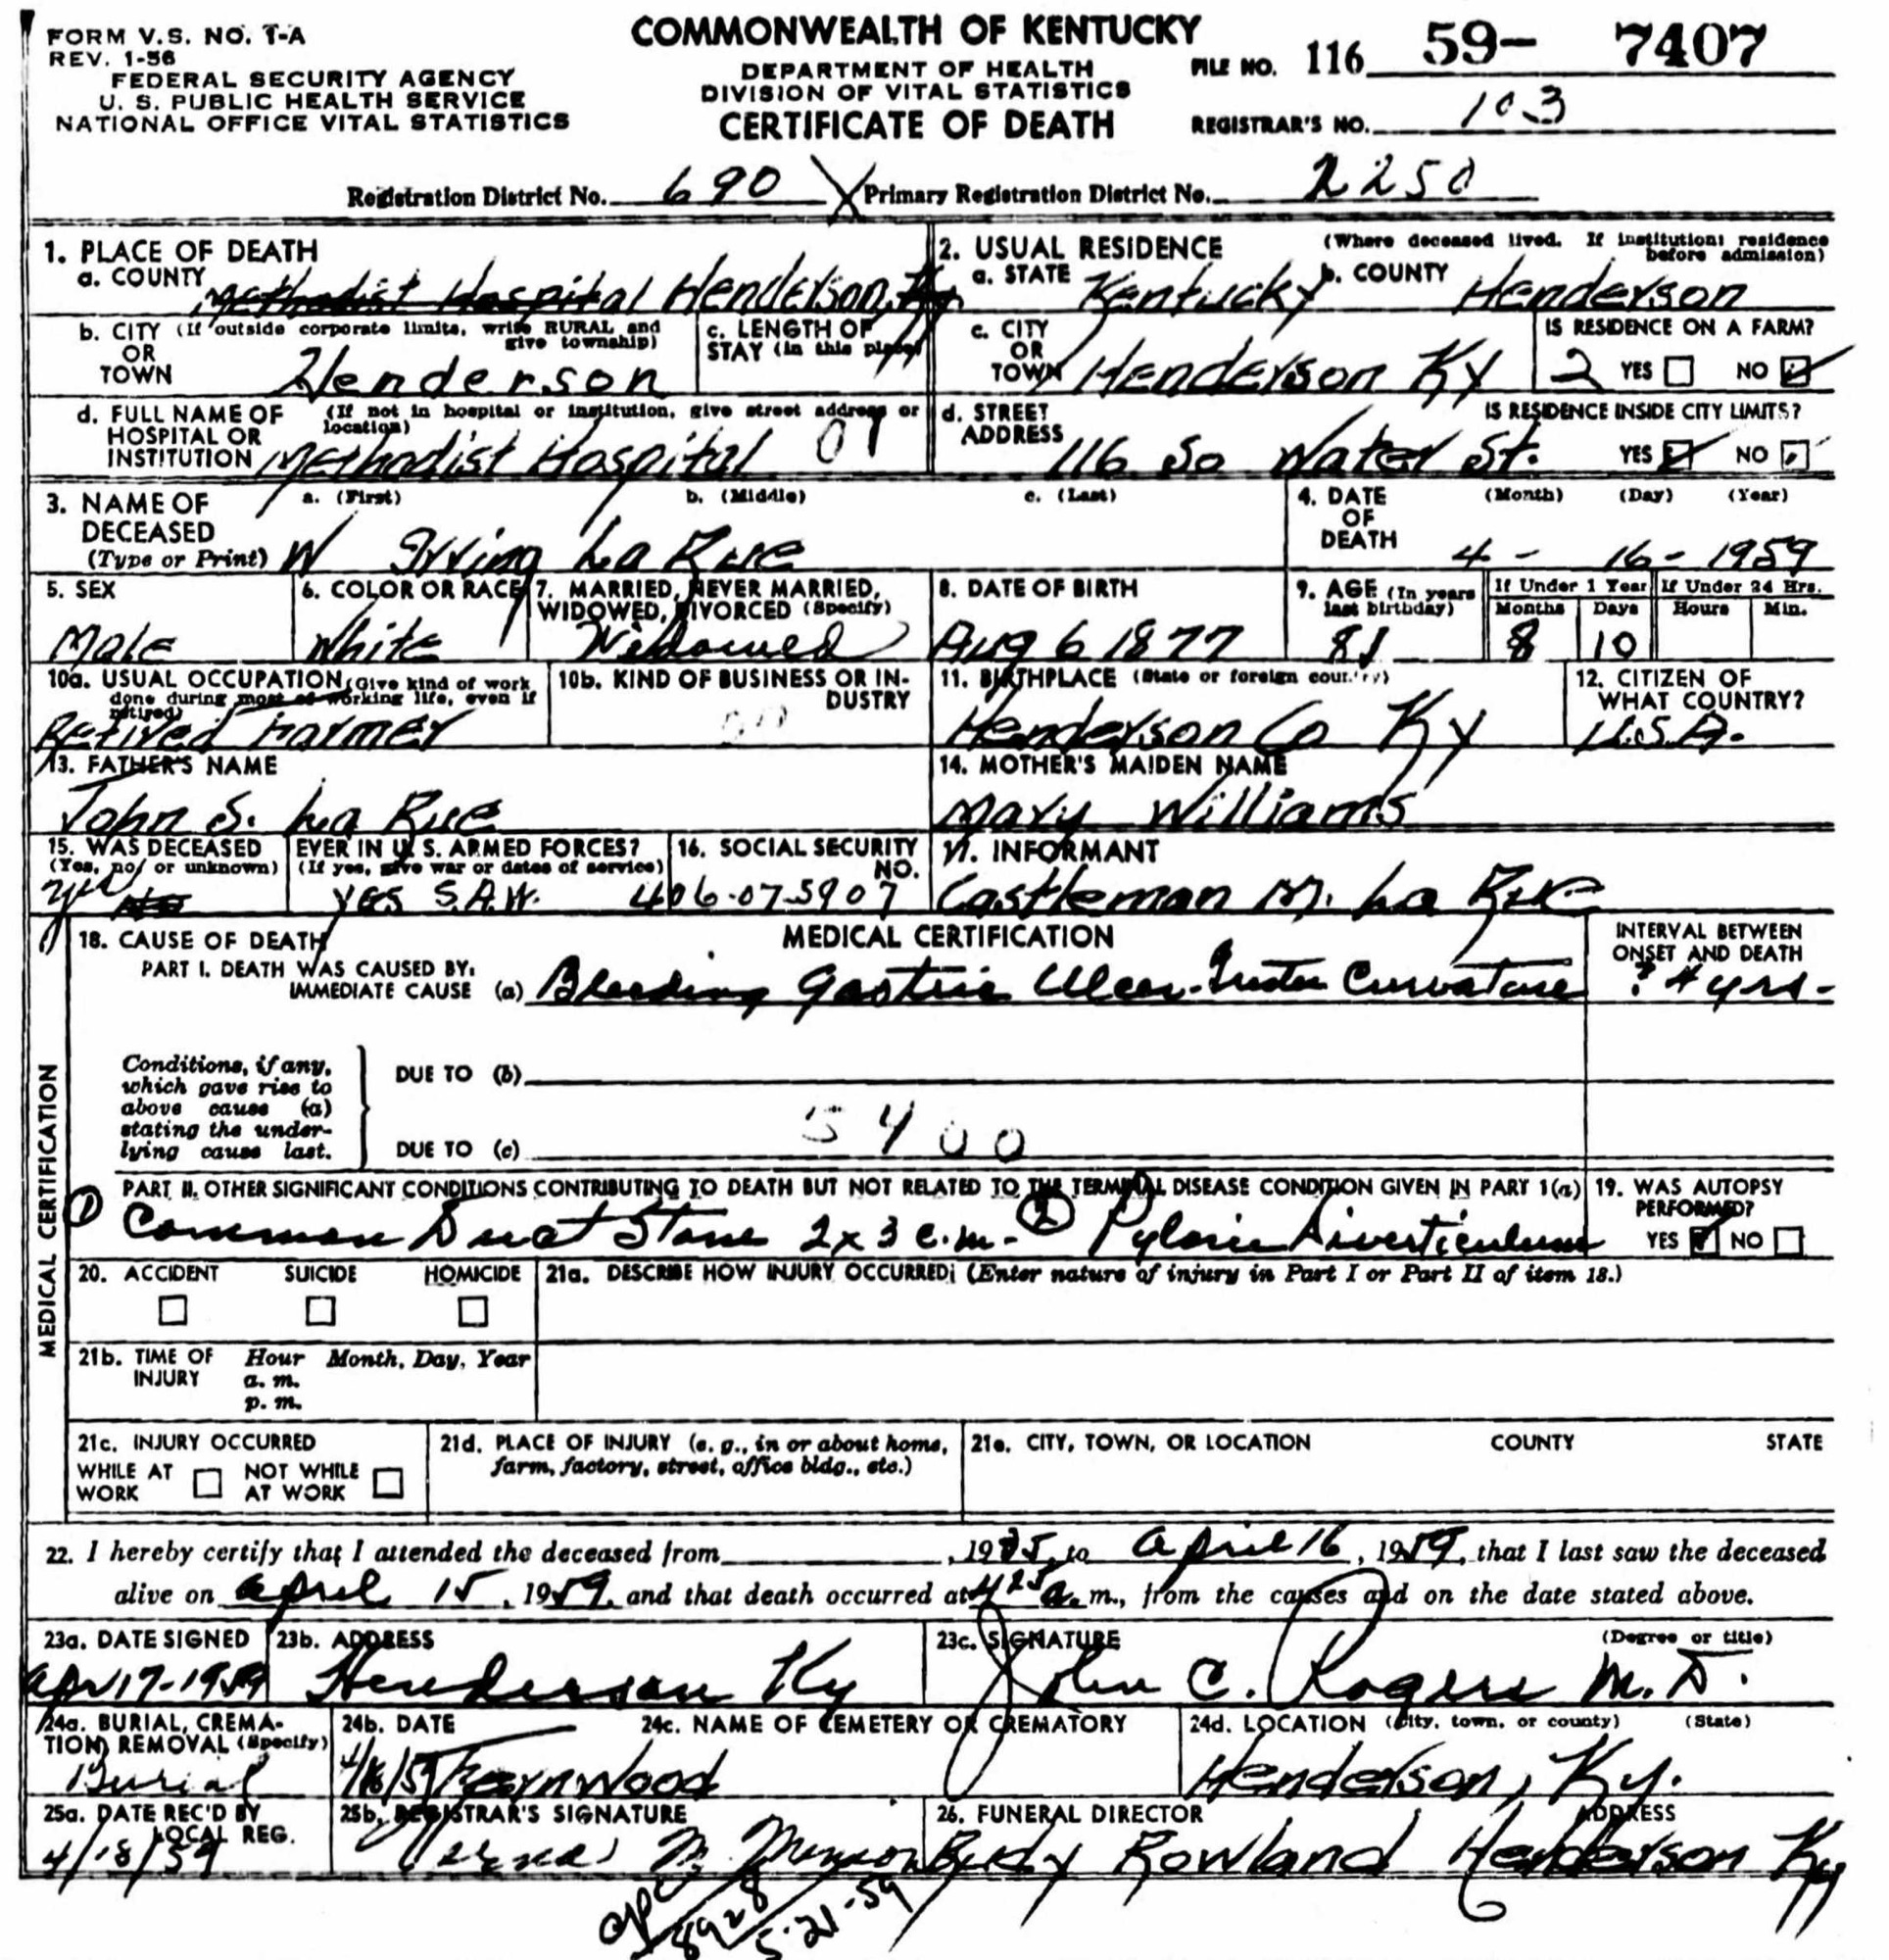 FORM V.S. NO. 1-A
REV. 1-56
FEDERAL SECURITY AGENCY
U. S. PUBLIC HEALTH SERVICE
NATIONAL OFFICE VITAL STATISTICS
COMMONWEALTH OF KENTUCKY
DEPARTMENT OF HEALTH
DIVISION OF VITAL STATISTICS
CERTIFICATE OF DEATH
FILE NO. 116 59- 7407
REGISTRAR'S NO. 103
Registration District No. 690 X Primary Registration District No. 2250
1. PLACE OF DEATH
a. COUNTY Methodist Hospital Henderson, Ky.
2. USUAL RESIDENCE (Where deceased lived. If institution: residence before admission)
a. STATE Kentucky b. COUNTY Henderson
b. CITY (If outside corporate limits, write RURAL and give township)
OR
TOWN Henderson
c. LENGTH OF
STAY (in this place)
c. CITY
OR
TOWN Henderson Ky
IS RESIDENCE ON A FARM?
2 YES NO
d. FULL NAME OF (If not in hospital or institution, give street address or location)
HOSPITAL OR
INSTITUTION Methodist Hospital 01
d. STREET
ADDRESS 116 So Water St.
IS RESIDENCE INSIDE CITY LIMITS?
YES NO
3. NAME OF
DECEASED
(Type or Print)
a. (First) b. (Middle) c. (Last)
W Irving La Rue
4. DATE
OF
DEATH
(Month) (Day) (Year)
4 - 16 - 1959
5. SEX
Male
6. COLOR OR RACE
White
7. MARRIED, NEVER MARRIED,
WIDOWED, DIVORCED (Specify)
Widowed
8. DATE OF BIRTH
Aug 6 1877
9. AGE (In years
last birthday)
81
If Under 1 Year If Under 24 Hrs.
Months Days Hours Min.
8 10
10a. USUAL OCCUPATION (Give kind of work
done during most of working life, even if
retired)
Retired Farmer
10b. KIND OF BUSINESS OR IN-
DUSTRY
11. BIRTHPLACE (State or foreign country)
Henderson Co Ky
12. CITIZEN OF
WHAT COUNTRY?
U.S.A.
13. FATHER'S NAME
John S. La Rue
14. MOTHER'S MAIDEN NAME
Mary Williams
15. WAS DECEASED EVER IN U. S. ARMED FORCES?
(Yes, no, or unknown) (If yes, give war or dates of service)
yes No YES S.A.W.
16. SOCIAL SECURITY
NO.
406-07-5907
17. INFORMANT
Castleman M. La Rue
MEDICAL CERTIFICATION
18. CAUSE OF DEATH
MEDICAL CERTIFICATION
INTERVAL BETWEEN
ONSET AND DEATH
PART I. DEATH WAS CAUSED BY:
IMMEDIATE CAUSE (a) Bleeding Gastric Ulcer - Curvature ? 4 yrs -
Conditions, if any,
which gave rise to
above cause (a)
stating the under-
lying cause last.
DUE TO (b)
DUE TO (c) 5400
PART II. OTHER SIGNIFICANT CONDITIONS CONTRIBUTING TO DEATH BUT NOT RELATED TO THE TERMINAL DISEASE CONDITION GIVEN IN PART I(a)
① Common Duct Stone 2x3 c.m. - ② Pyloric Diverticulum
19. WAS AUTOPSY
PERFORMED?
YES NO
20. ACCIDENT SUICIDE HOMICIDE
21a. DESCRIBE HOW INJURY OCCURRED: (Enter nature of injury in Part I or Part II of item 18.)
21b. TIME OF
INJURY
Hour Month, Day, Year
a. m.
p. m.
21c. INJURY OCCURRED
WHILE AT
WORK
NOT WHILE
AT WORK
21d. PLACE OF INJURY (e. g., in or about home,
farm, factory, street, office bldg., etc.)
21e. CITY, TOWN, OR LOCATION COUNTY STATE
22. I hereby certify that I attended the deceased from , 19 to April 16, 1959, that I last saw the deceased
alive on April 15, 1959, and that death occurred at 4 25 a. m., from the causes and on the date stated above.
23a. DATE SIGNED
Apr 17-1959
23b. ADDRESS
Henderson Ky
23c. SIGNATURE (Degree or title)
John C. Rogers M.D.
24a. BURIAL, CREMA-
TION, REMOVAL (Specify)
Burial
24b. DATE
4/18/59
24c. NAME OF CEMETERY OR CREMATORY
Fernwood
24d. LOCATION (City, town, or county) (State)
Henderson, Ky.
25a. DATE REC'D BY
LOCAL REG.
4/18/59
25b. REGISTRAR'S SIGNATURE
26. FUNERAL DIRECTOR ADDRESS
Rudy Rowland Henderson Ky
8928
5-21-59